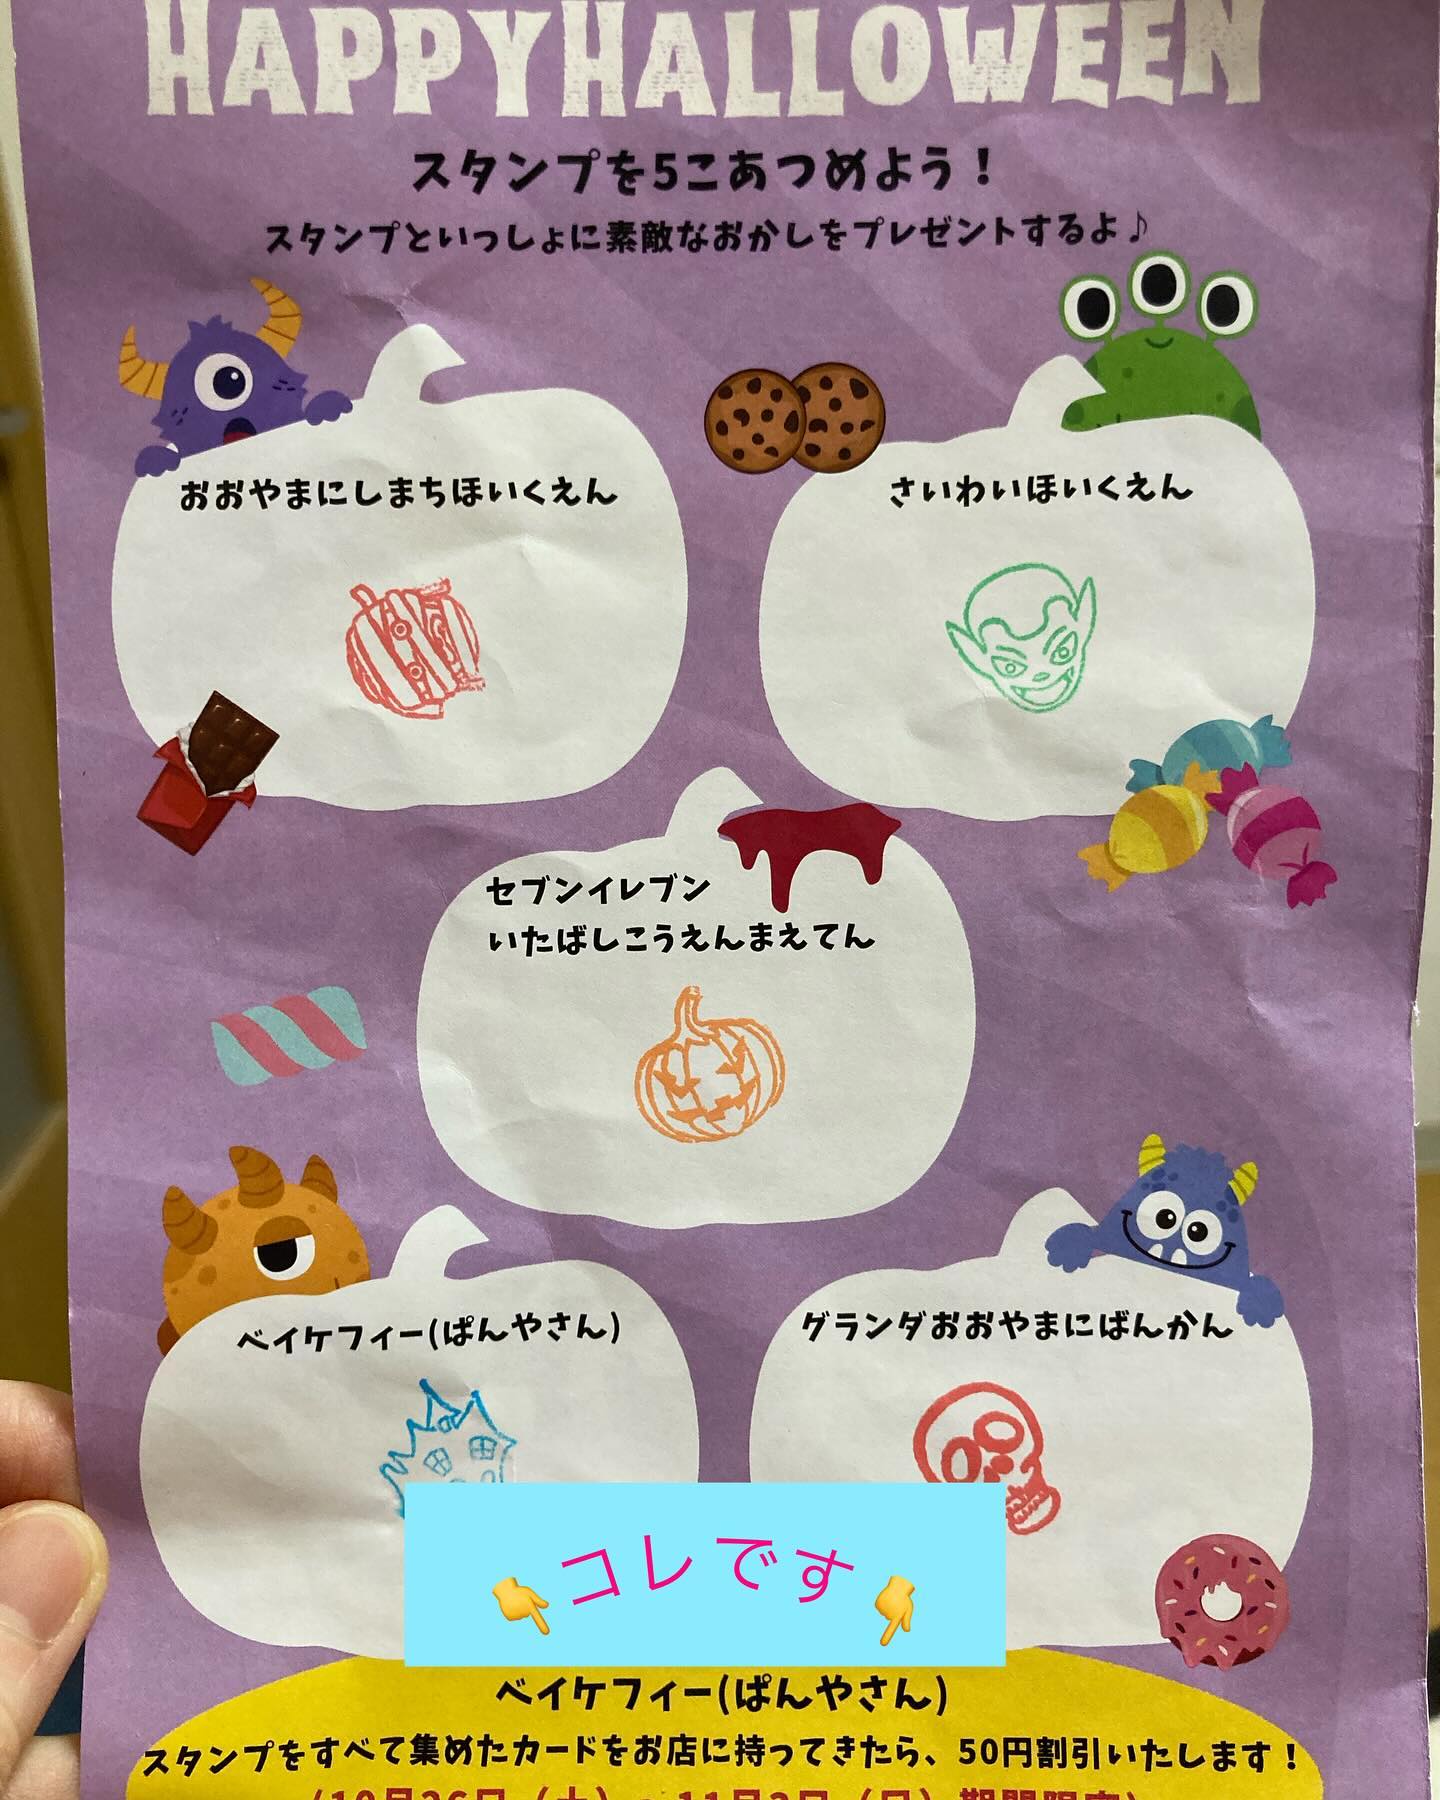 HAPPYHALLOWEEN
スタンプを5こあつめよう！
スタンプといっしょに素敵なおかしをプレゼントするよ♪
おおやまにしまちほいくえん
さいわいほいくえん
セブンイレブン
いたばしこうえんまえてん
ベイケフィー(ぱんやさん)
グランダおおやまにばんかん
👇コレです👇
ベイケフィー(ぱんやさん)
スタンプをすべて集めたカードをお店に持ってきたら、50円割引いたします！
(10月26日（土）～11月3日（日）期間限定)